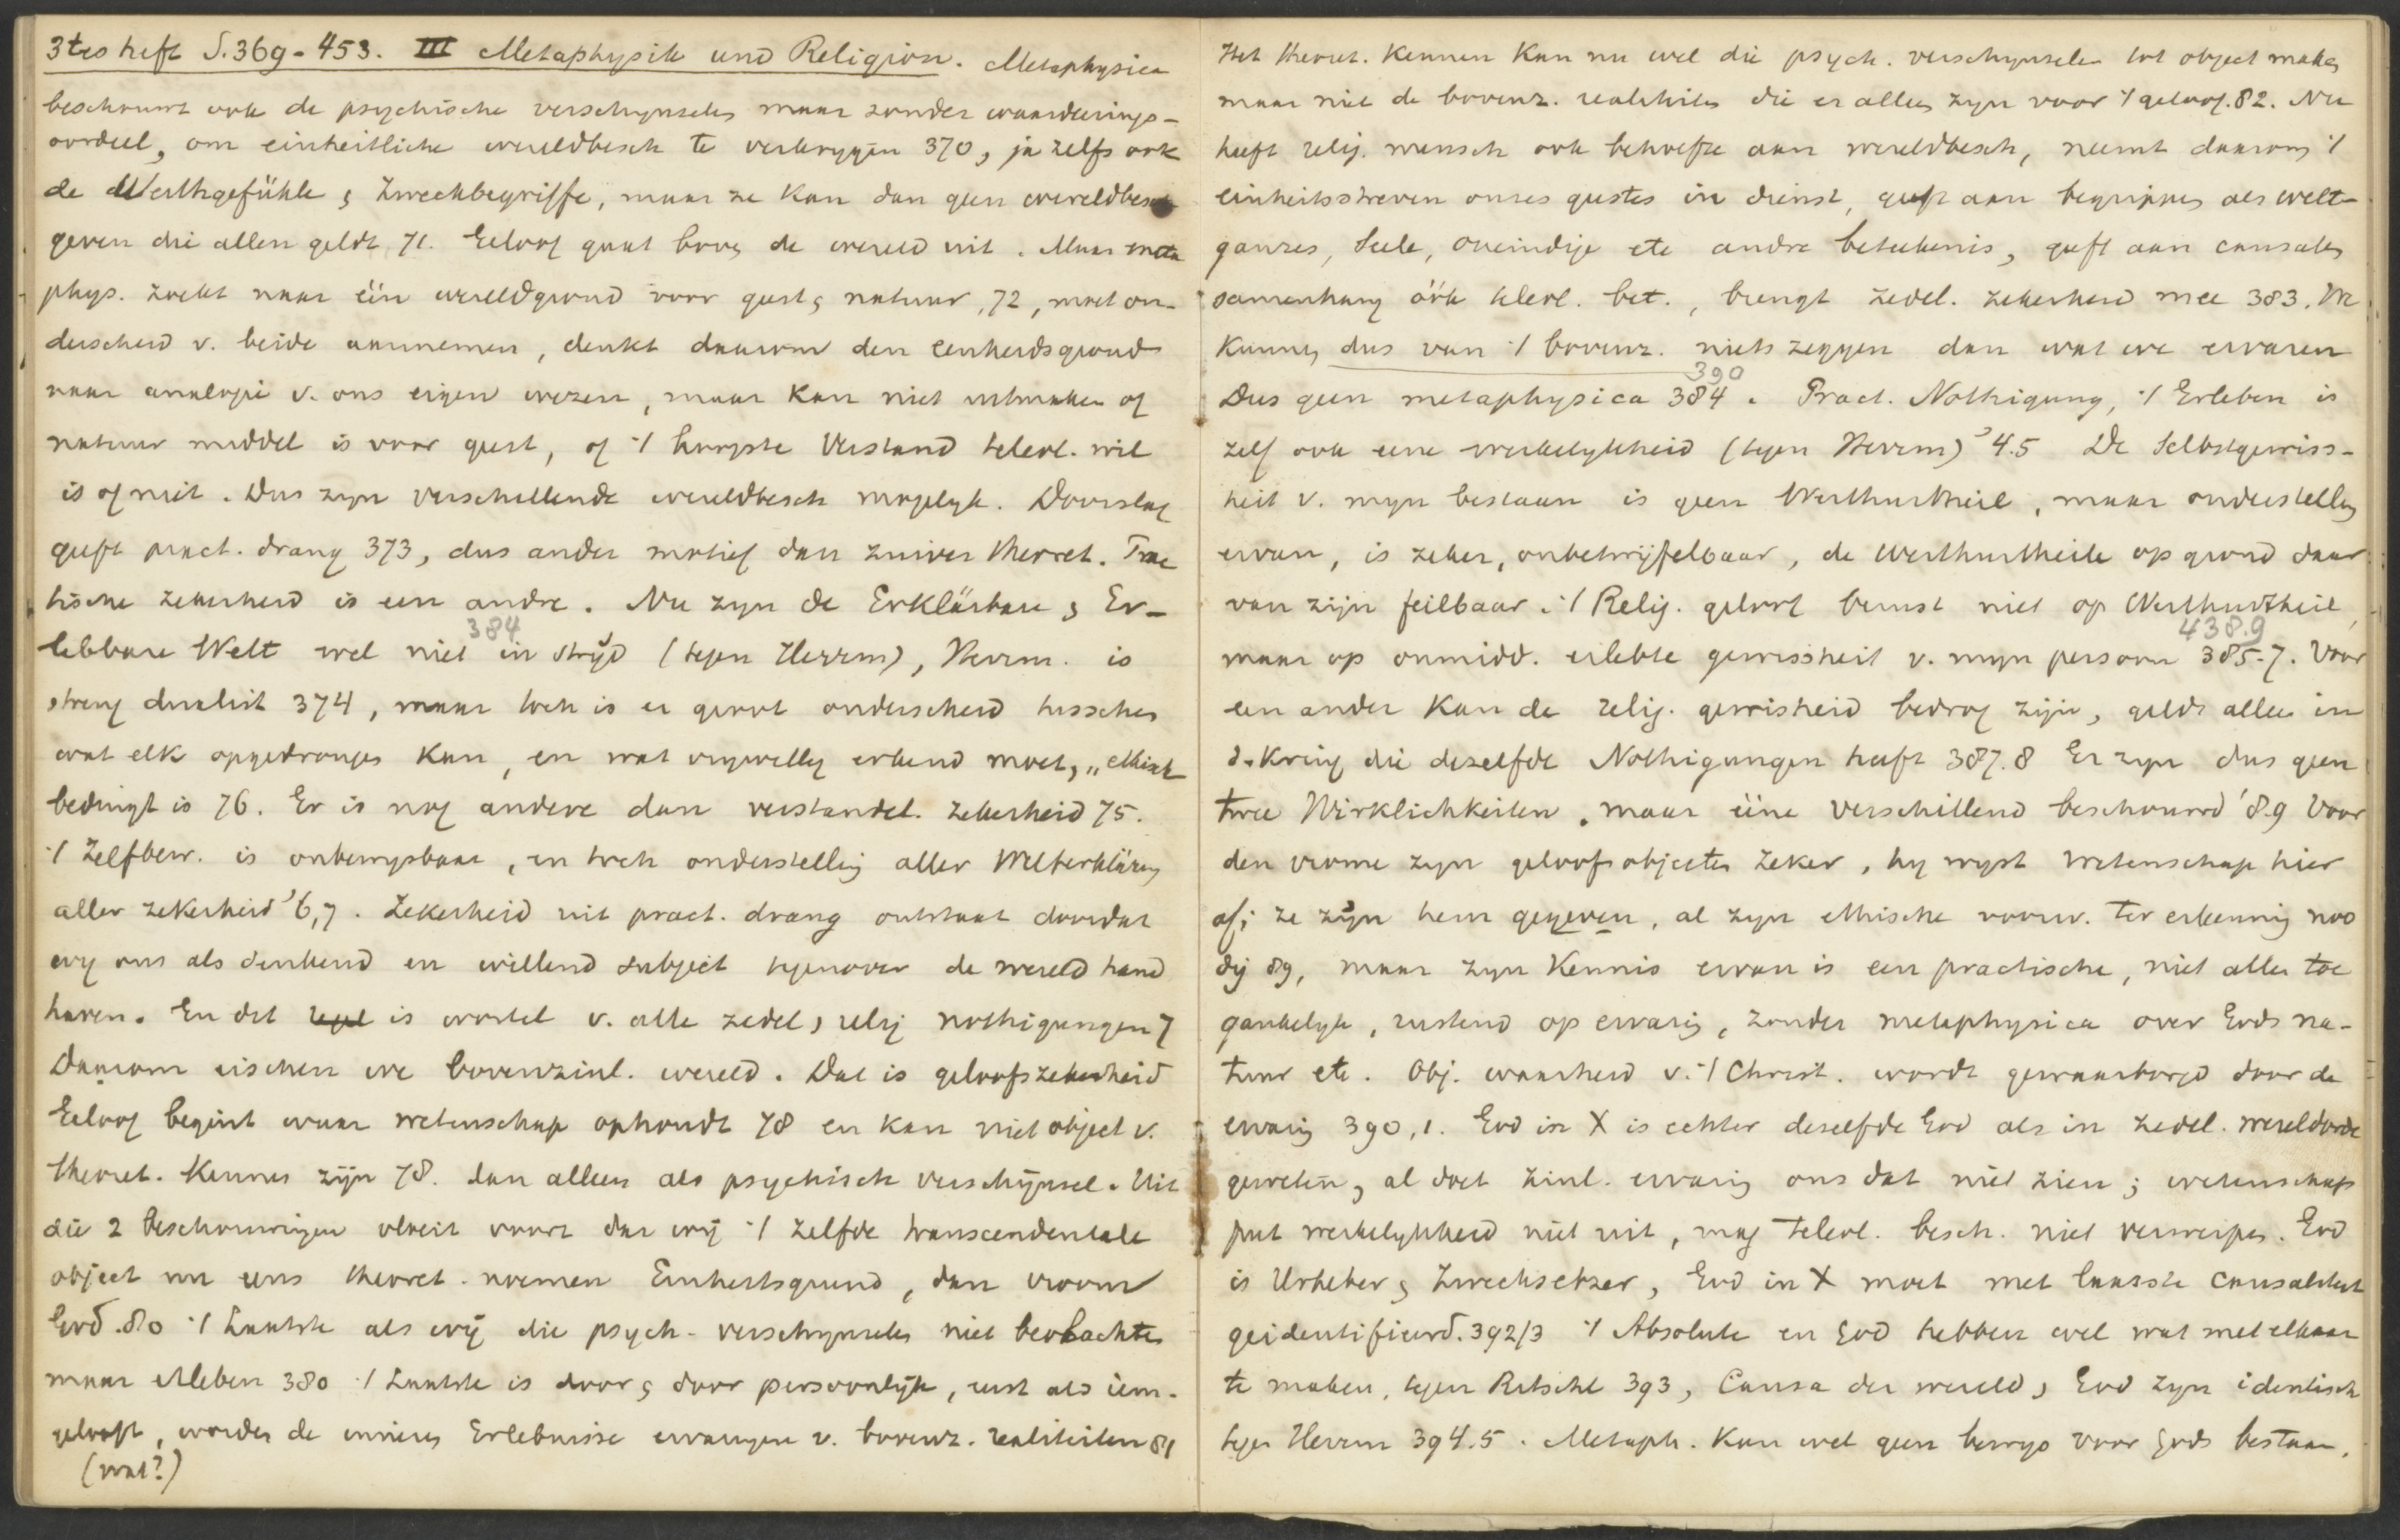 3tes heft S. 369-453. III Metaphysik und Religion. Metaphysica
beschouwt ook de psychische verschynselen maar zonder waarderings-
oordeel, om einheitliche wereldbesch te verkrygen 370, ja zelfs ook
de Werthgefühle & Zweckbegriffe, maar ze kan dan geen wereldbesch
geven die allen geldt 71. Geloof gaat boven de wereld uit. Maar meta
phys. zoekt naar één wereldgrond voor geest & natuur, 72, moet on-
derscheid v. beide aannemen, denkt daarom den eenheidsgrond
naar analogie v. ons eigen wezen, maar kan niet uitmaken of
natuur middel is voor geest, of 't hoogste Verstand teleol. wil
is of niet. Dus zyn verschillende wereldbesch mogelyk. Doorslag
geeft pract. drang 373, dus ander motief dan zuiver theoret. Prac
tische zekerheid is een andre. Nu zyn de Erklärbare & Er-
384
lebbare Welt wel niet in stryd (tegen Herrm), Herrm. is
streng dualist 374, maar toch is er groot onderscheid tusschen
wat elk opgedrongen kan, en wat vrywillig erkend moet, „ethisch
bedingt is 76. Er is nog andere dan verstandel. zekerheid 75.
't Zelfbew. is onbewysbaar, en toch onderstelling aller Welterklärung
aller zekerheid '6,7. Zekerheid uit pract. drang ontstaat doordat
wy ons als denkend en willend subject tegenover de wereld hand
haven. En dit is wortel v. alle zedel, relig nothigungen 7
Daarom eischen we bovenzinl. wereld. Dat is geloofszekerheid
Geloof begint waar wetenschap ophoudt 78 en kan niet object v.
theoret. kennen zijn 78. dan alleen als psychisch verschijnsel. Uit
die 2 beschouwingen vloeit voort dat wij 't zelfde transcendentale
object nu eens theoret. noemen Einheitsgrund, dan vroom
God. 80 't Laatste als wij die psych. verschynselen niet beobachten
maar erleben 380 't Laatste is door & door persoonlijk, eerst als iem.
gelooft, worden de inneren Erlebnisse ervaringen v. bovenz. realiteiten 81
(wat?)
Het theoret. kennen kan nu wel die psych. verschynselen tot object maken
maar niet de bovenz. realiteiten die er alleen zyn voor 't geloof. 82. Nu
heeft relig. mensch ook behoefte aan wereldbesch, neemt daarom 't
einheitsstreven onzes geestes in dienst, geeft aan begrippen als welt-
ganzes, Seele, oneindige etc andre beteekenis, geeft aan causalen
samenhang óók teleol. bet., brengt zedel. zekerheid mee 383. We
kunnen dus van 't bovenz. niets zeggen dan wat we ervaren
390
Dus geen metaphysica 384. Pract. Nothigung, 't Erleben is
zelf ook eene werkelykheid (tegen Herrm) '4.5 De Selbstgewiss-
heit v. myn bestaan is geen Werthurtheil, maar onderstelling
ervan, is zeker, onbetwijfelbaar, de Werthurtheile op grond daar
van zijn feilbaar. 't Relig. geloof berust niet op Werthurtheil,
438.9
maar op onmidd. erlebte gewissheit v. myn persoon 385-7. Voor
een ander kan de relig. gewisheid bedrog zijn, geldt alleen in
d. kring die dezelfde Nothigungen heeft 387.8 Er zyn dus geen
twee Wirklichkeiten, maar ééne verschillend beschouwd '8.9 Voor
den vrome zyn geloofsobjecten zeker, hy wyst wetenschap hier
af; ze zyn hem gegeven, al zyn ethische voorw. ter erkenning noo
dig 89, maar zyn kennis ervan is een practische, niet allen toe
gankelyk, rustend op ervaring, zonder metaphysica over Gods na-
tuur etc. Obj. waarheid v. 't Christ. wordt gewaarborgd door de
ervaring 390,1. God in X is echter dezelfde God als in zedel. wereldorde
geweten, al doet zinl. ervaring ons dat niet zien; wetenschap
put werkelykheid niet uit, mag teleol. besch. niet verwerpen. God
is Urheber & Zwecksetzer, God in X moet met laatste causaliteit
geidentificeerd. 392/3 't Absolute en God hebben wel wat met elkaar
te maken, tegen Ritschl 393, Causa der wereld, God zyn identisch
tegen Herrm 394.5. Metaph. kan wel geen bewys voor Gods bestaan,